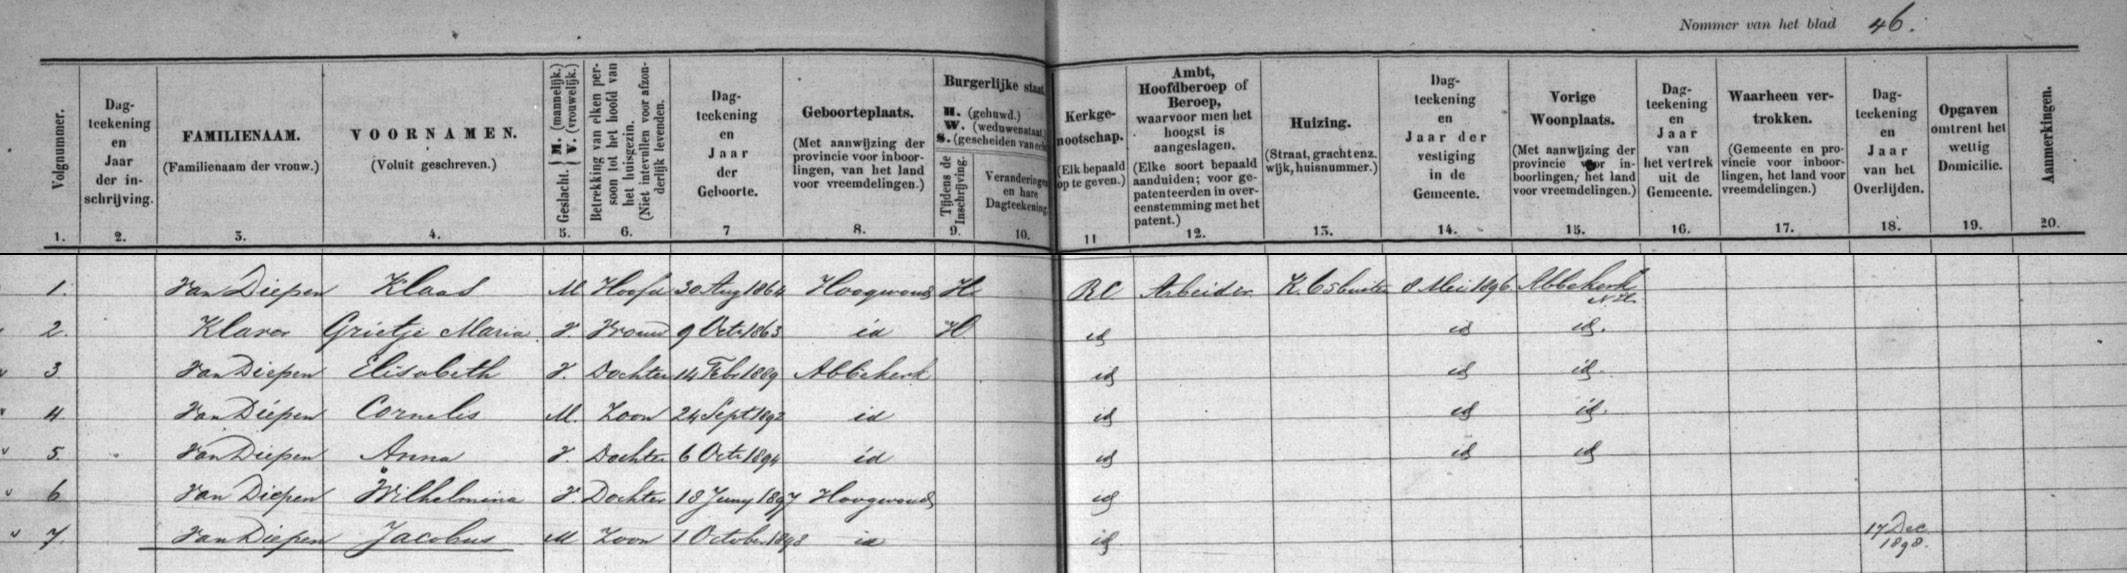 Nommer van het blad 46.
Volgnummer.
Dag-
teekening
en
Jaar
der in-
schrijving.
FAMILIENAAM.
(Familienaam der vrouw.)
VOORNAMEN.
(Voluit geschreven.)
Geslacht. M. (mannelijk.)
V. (vrouwelijk.)
Betrekking van elken per-
soon tot het hoofd van
het huisgezin.
(Niet intevullen voor afzon-
derlijk levenden.)
Dag-
teekening
en
Jaar
der
Geboorte.
Geboorteplaats.
(Met aanwijzing der
provincie voor inboor-
lingen, van het land
voor vreemdelingen.)
Burgerlijke staat.
H. (gehuwd.)
W. (weduwenstaat.)
S. (gescheiden van echt
Tijdens de
Inschrijving.
Veranderingen
en hare
Dagteekening.
Kerkge-
nootschap.
(Elk bepaald
op te geven.)
Ambt,
Hoofdberoep of
Beroep,
waarvoor men het
hoogst is
aangeslagen.
(Elke soort bepaald
aanduiden; voor ge-
patenteerden in over-
eenstemming met het
patent.)
Huizing.
(Straat, gracht enz.
wijk, huisnummer.)
Dag-
teekening
en
Jaar der
vestiging
in de
Gemeente.
Vorige
Woonplaats.
(Met aanwijzing der
provincie voor in-
boorlingen, het land
voor vreemdelingen.)
Dag-
teekening
en
Jaar
van
het vertrek
uit de
Gemeente.
Waarheen ver-
trokken.
(Gemeente en pro-
vincie voor inboor-
lingen, het land voor
vreemdelingen.)
Dag-
teekening
en
Jaar
van het
Overlijden.
Opgaven
omtrent het
wettig
Domicilie.
Aanmerkingen.
1. 2. 3. 4. 5. 6. 7 8. 9. 10. 11 12. 13. 14. 15. 16. 17. 18. 19. 20.
1. Van Diepen Klaas M Hoofd 30 Aug 1864 Hoogwoud H. RC Arbeider 8 Mei 1896 Abbekerk
N.H.
2. Klaver Grietje Maria. V. Vrouw 9 Octr 1863 id H. id id id.
3 Van Diepen Elisabeth V. Dochter 14 Febr 1889 Abbekerk id id id.
4. Van Diepen Cornelis M. Zoon 24 Sept 1892 id id id id.
5. Van Diepen Anna V Dochter 6 Octr 1894 id id id id
6 Van Diepen Wilhelmina V. Dochter 18 Juny 1897 Hoogwoud id
7 Van Diepen Jacobus M Zoon 1 October 1898 id id 17 Dec
1898.